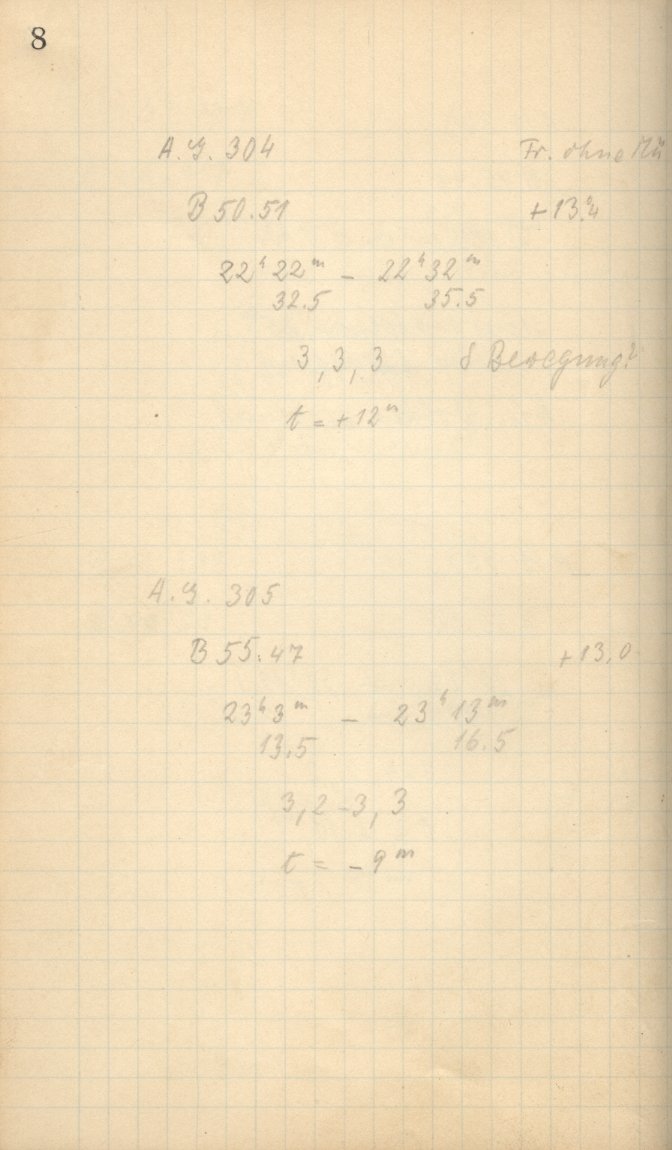 8
A. G. 304 Fr. ohne Mü
B 50.51 +13.°4
22ʰ 22ᵐ – 22ʰ 32ᵐ
32.5 35.5
3, 3, 3 δ Bewegung?
t = +12ᵐ
A. G. 305
B 55.47 +13,0
23ʰ 3ᵐ – 23ʰ 13ᵐ
13.5 16.5
3, 2–3, 3
t = –9ᵐ